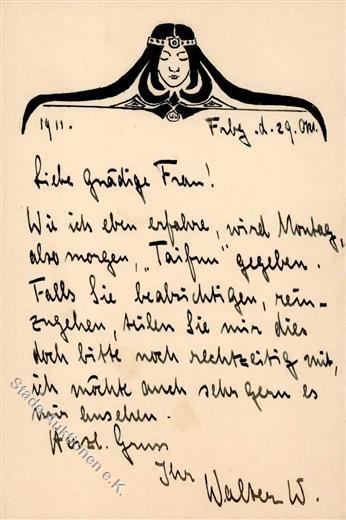 1911.
Frbg. d. 29. Okt.
Liebe gnädige Frau!
Wie ich eben erfahre, wird Montag,
also morgen, „Taifun" gegeben.
Falls Sie beabsichtigen, rein-
zugehen, teilen Sie mir dies
doch bitte noch rechtzeitig mit,
ich möchte auch sehr gern es
mir ansehen.
Herzl. Gruss
Ihr Walter W.
Stade Auktionen e.K.